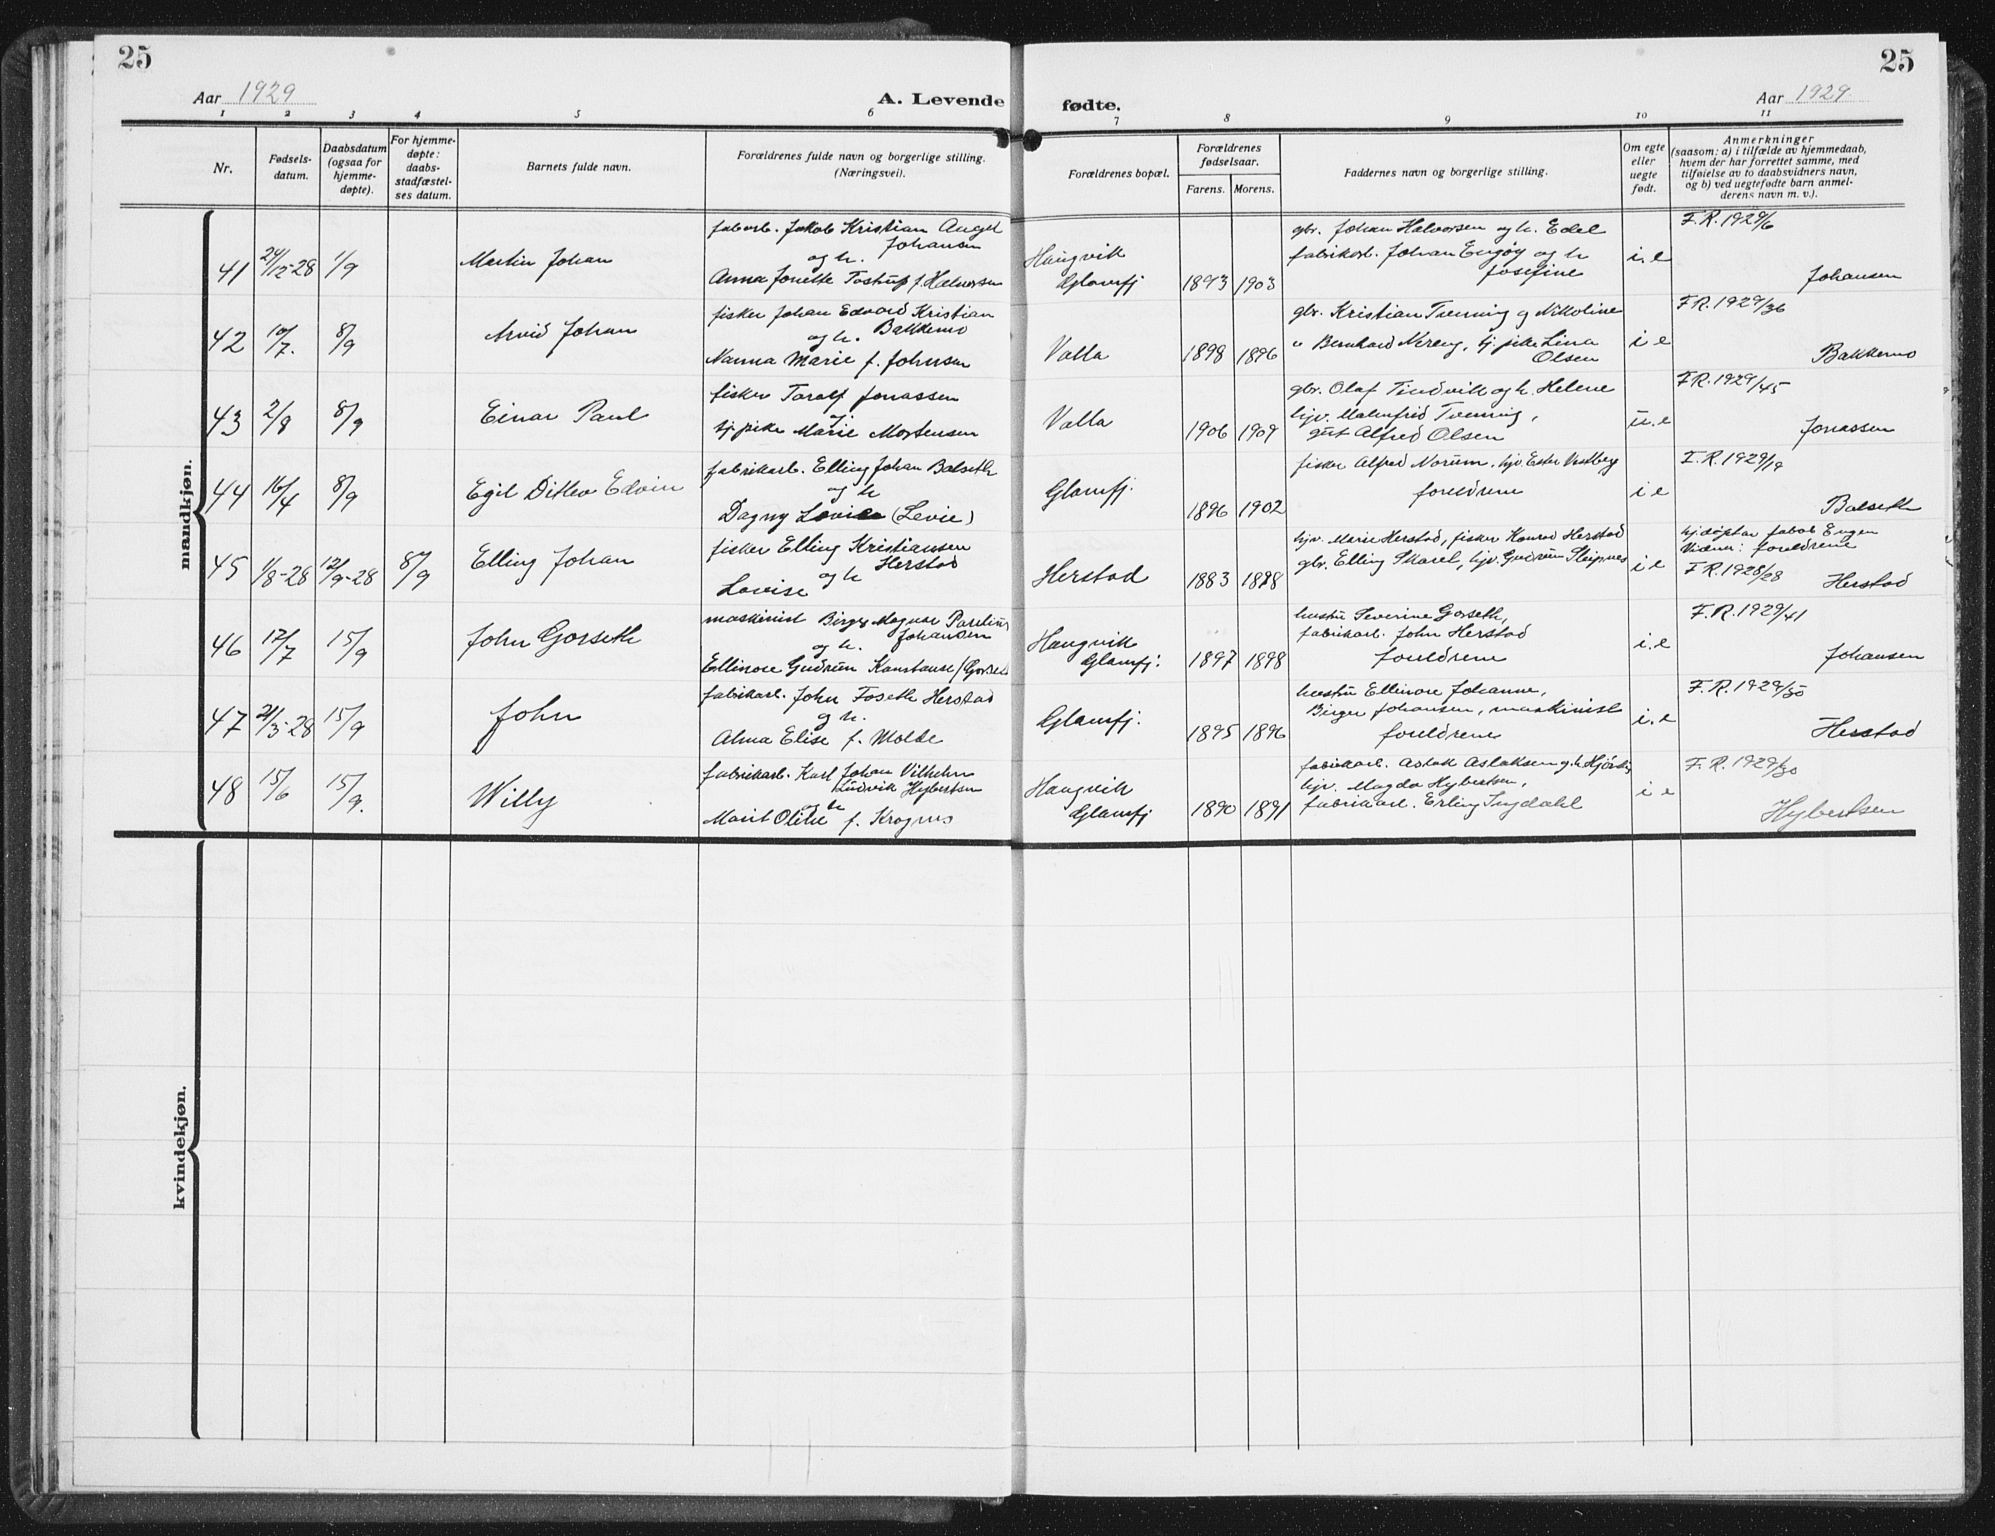 25
25
Aar 1929
A. Levende fødte.
Aar 1929
1 2 3 4 5 6 7 8 9 10 11
Nr.
Fødsels-
datum.
Daabsdatum
(ogsaa for
hjemme-
døpte).
For hjemme-
døpte:
daabs-
stadfæstel-
ses datum.
Barnets fulde navn.
Forældrenes fulde navn og borgerlige stilling.
(Næringsvei).
Forældrenes bopæl.
Forældrenes
fødselsaar.
Farens. Morens.
Faddernes navn og borgerlige stilling.
Om egte
eller
uegte
født.
Anmerkninger
(saasom: a) i tilfælde av hjemmedaab,
hvem der har forrettet samme, med
tilføielse av to daabsvidners navn,
og b) ved uegtefødte barn anmel-
derens navn m. v.).
mandkjøn.
41 29/12-28 1/9
Martin Johan
Jakob Kristian Angel
Johansen
og h.
Anna Jonette Tostrup f. Halvorsen
Haugvik
Glomfj
1893 1903
gbr. Johan Halvorsen og h. Edel
fabrikarb. Johan Engøy og h
Josefine
i.e
F.R. 1929/6
Johansen
42 10/7. 8/9
Arvid Johan
fisker Johan Edvard Kristian
Bakkemo
og h.
Nanna Marie f. Johnsen
Valla
1898 1896
gbr. Kristian Tvenning og Nikoline
" Bernhard Nereng, tj. pike Lina
Olsen
i e
F.R. 1929/36
Bakkemo
43 2/8 8/9
Einar Paul
fisker Toralf Jonassen
og
tj. pike Marie Mortensen
Valla
1906 1909
gbr. Olaf Tindvik og h. Helene
hjv. Malmfrid Tvenning,
gut Alfred Olsen
u.e
F.R. 1929/45
Jonassen
44 16/4 8/9
Egil Ditlev Edvin
fabrikarb. Elling Johan Balseth
og h
Dagny Lovise (Levie)
Glomfj.
1896 1902
fisker Alfred Norum, hjv. Ester Vestberg
foreldrene
i e
F.R. 1929/19
Balseth
45 1/8-28 12/9-28 8/9
Elling Johan
fisker Elling Kristiansen
Herstad
og h
Lovise
Herstad
1883 1888
hjv. Marie Herstad, fisker Konrad Herstad
gbr. Elling Skarel, hjv. Gudrun Sleipnes
i e
hj.døpt av jakob Engen
Vidner: foreldrene
F.R. 1928/28
Herstad
46 17/7 15/9
John Gorseth
maskinist Birger Magnar Paulinus
Johansen
og h.
Ellinore Gudrun Konstanse f Gorseth
Haugvik
Glomfj.
1897 1898
hustru Severine Gorseth,
fabrikarb. John Herstad
foreldrene
i.e
F.R. 1929/41
Johansen
47 21/3-28 15/9
John
fabrikarb. John Foseth Herstad
og h.
Alma Elise f. Molde
Glomfj.
1895 1896
hustru Ellinore Johanne,
Birger Johansen, maskinist
foreldrene
i.e
F.R. 1929/50
Herstad
48 15/6 15/9.
Willy
fabrikarb. Karl Johan Vilhelm
Ludvik Hybertsen
og h
Marit Olise f. Krognes
Haugvik
Glomfj
1890 1891
fabrikarb. Aslak Aslaksen og h Hjørdis
hjv. Magda Hybertsen,
fabrikarb. Erling Ingdahl
i e
F.R. 1929/30
Hybertsen
kvindekjøn.